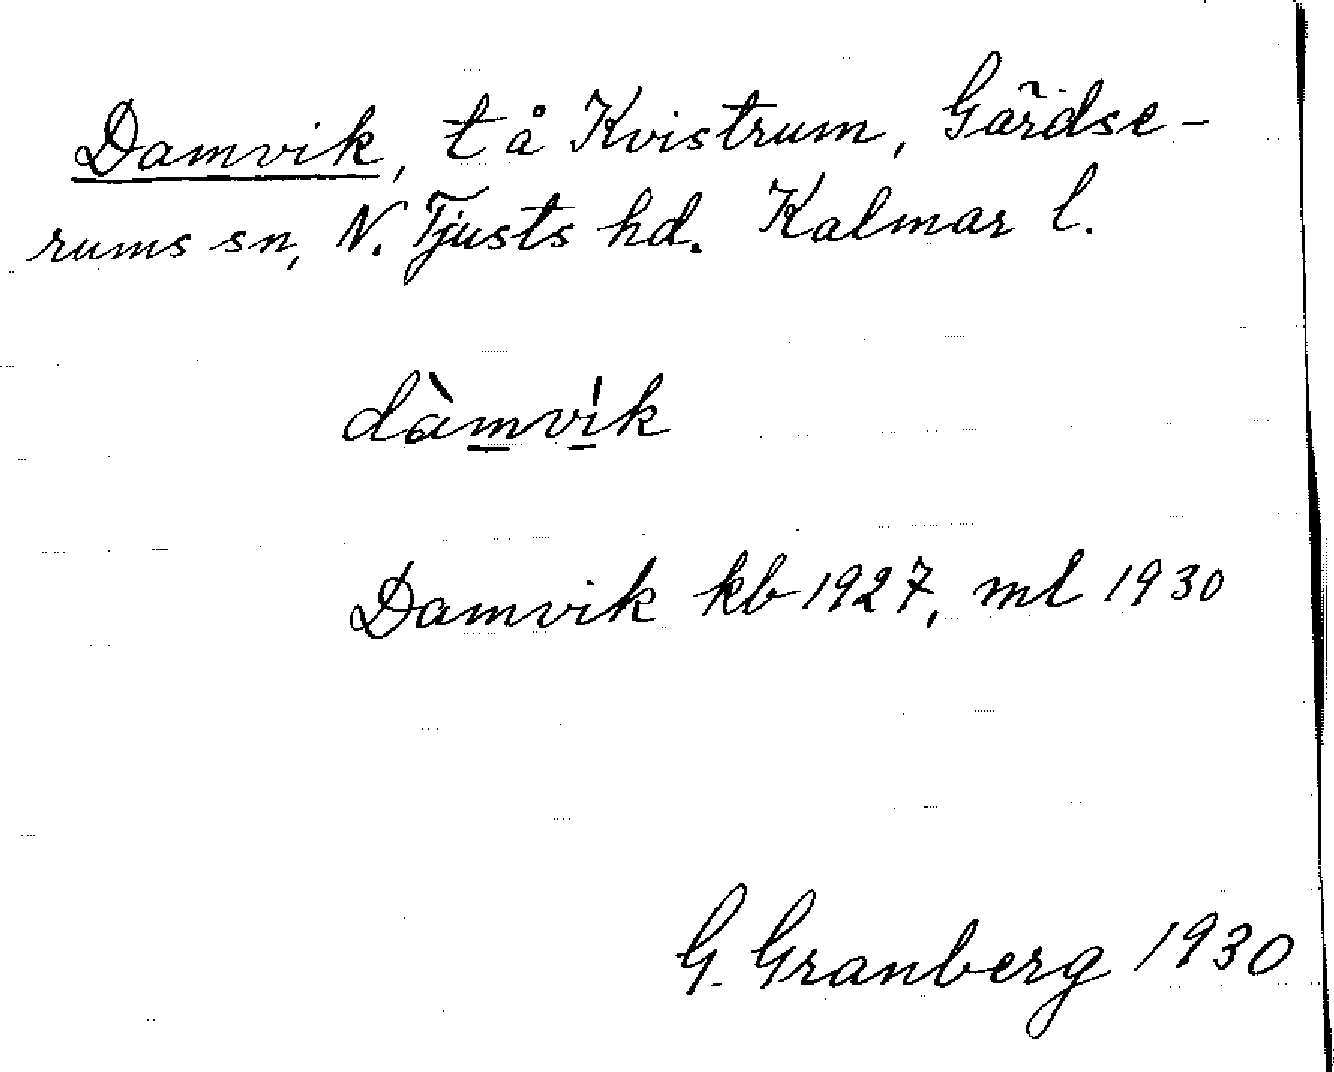 Damvik, t å Kvistrum, Gärdse-
rums sn, N. Tjusts hd. Kalmar l.
dàmvik
Damvik kb 1927, ml 1930
G. Granberg 1930